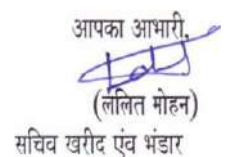 आपका आभारी,
(ललित मोहन)
सचिव खरीद एंव भंडार